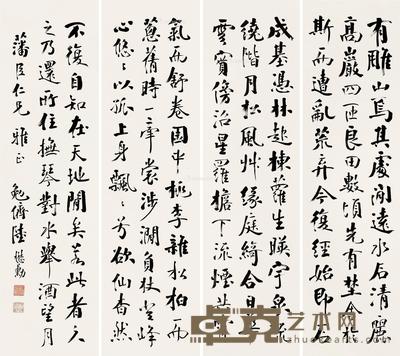 有雕山焉其處閒遠水石清麗
高巖四匝良田數頃先有墅舍于
斯而遭亂荒弃今復經始即石
成基憑林起棟蘿生暎宇泉流
繞階月松風艸緣庭綺合日華
雲實傍沼星羅檐下流煙共霄
氣而舒卷園中桃李雜松柏而
蔥蒨時一牽裳涉澗負杖登峰
心悠悠以孤上身飄飄兮欲仙杳然
不復自知在天地間矣若此者久
之乃還所住撫琴對水舉酒望月
藩臣仁兄雅正 勉儕陸懋勳
艺术网